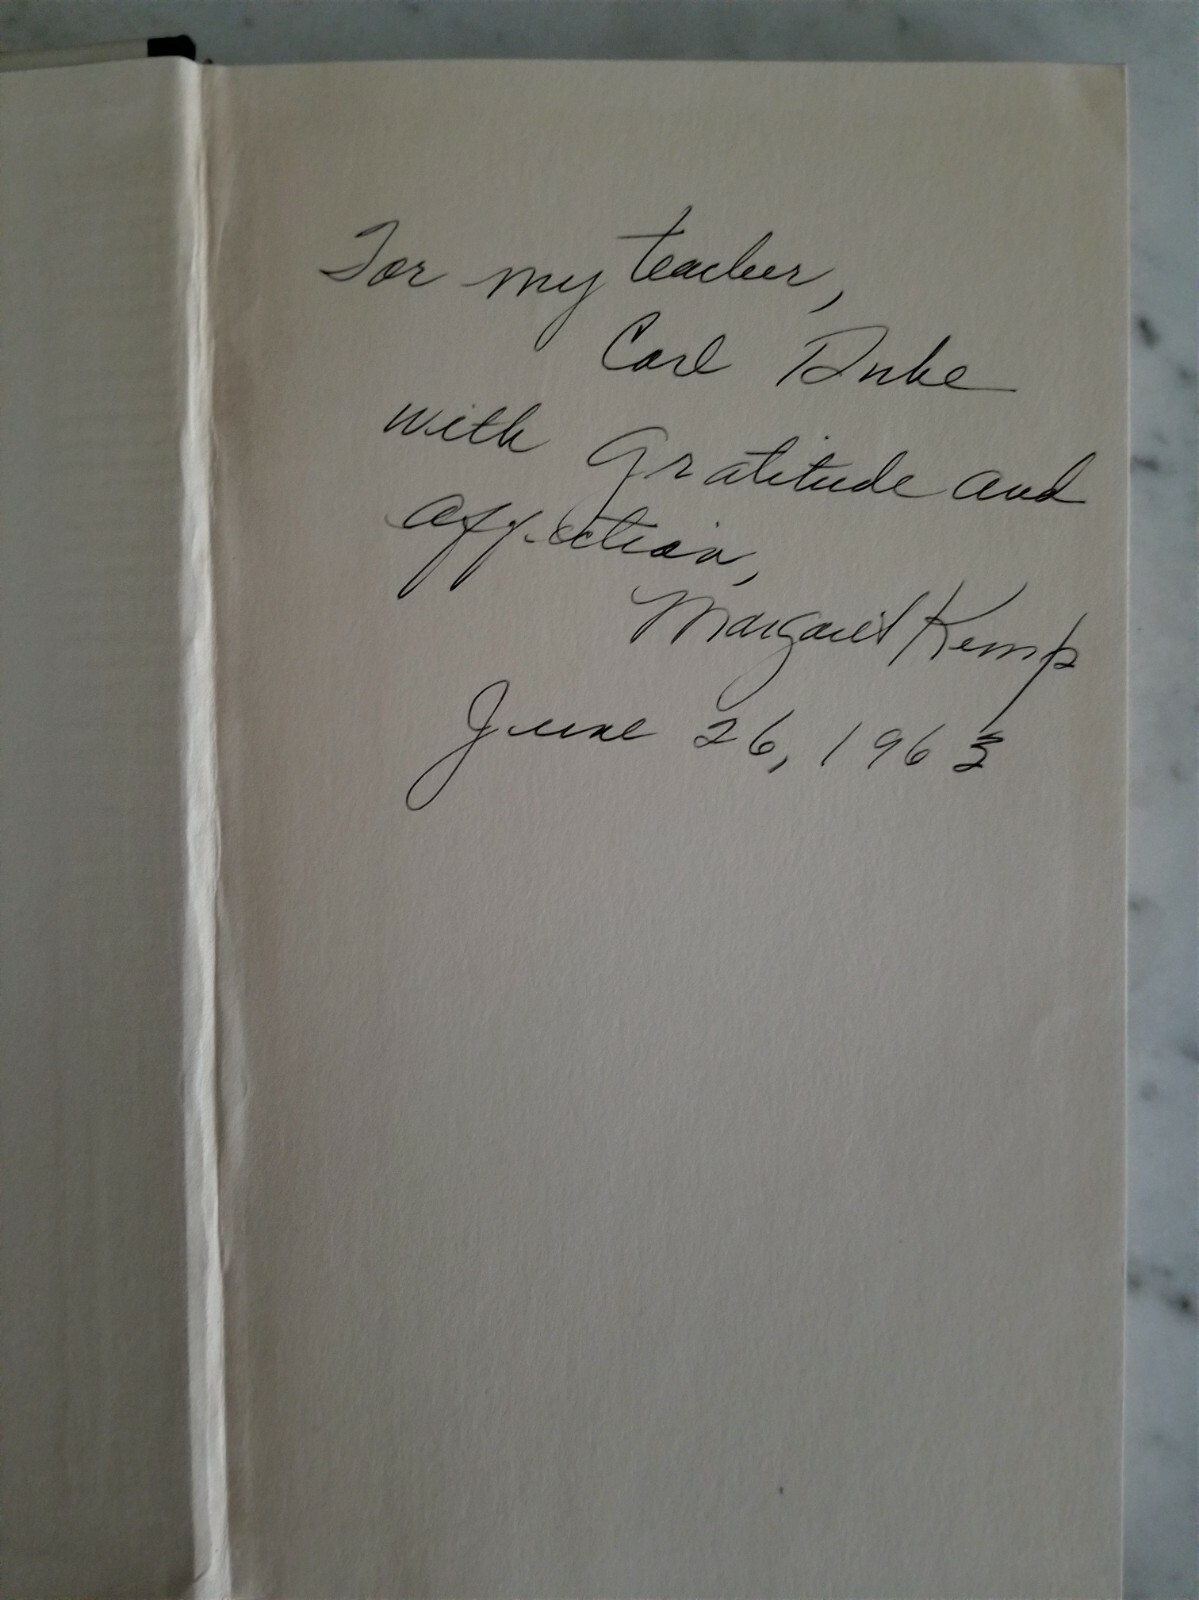 For my teacher,
Carl Duke
with Gratitude and
affection,
Margaret Kemp
June 26, 1963